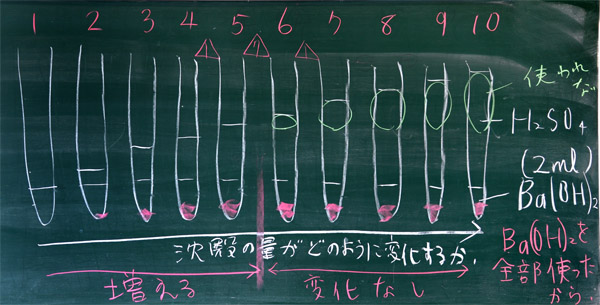 1 2 3 4 5 6 7 8 9 10
使われ
な
H₂SO₄
(2ml)
Ba(OH)₂
沈殿の量がどのように変化するか.
増える
変化なし
Ba(OH)₂を
全部使った
から.